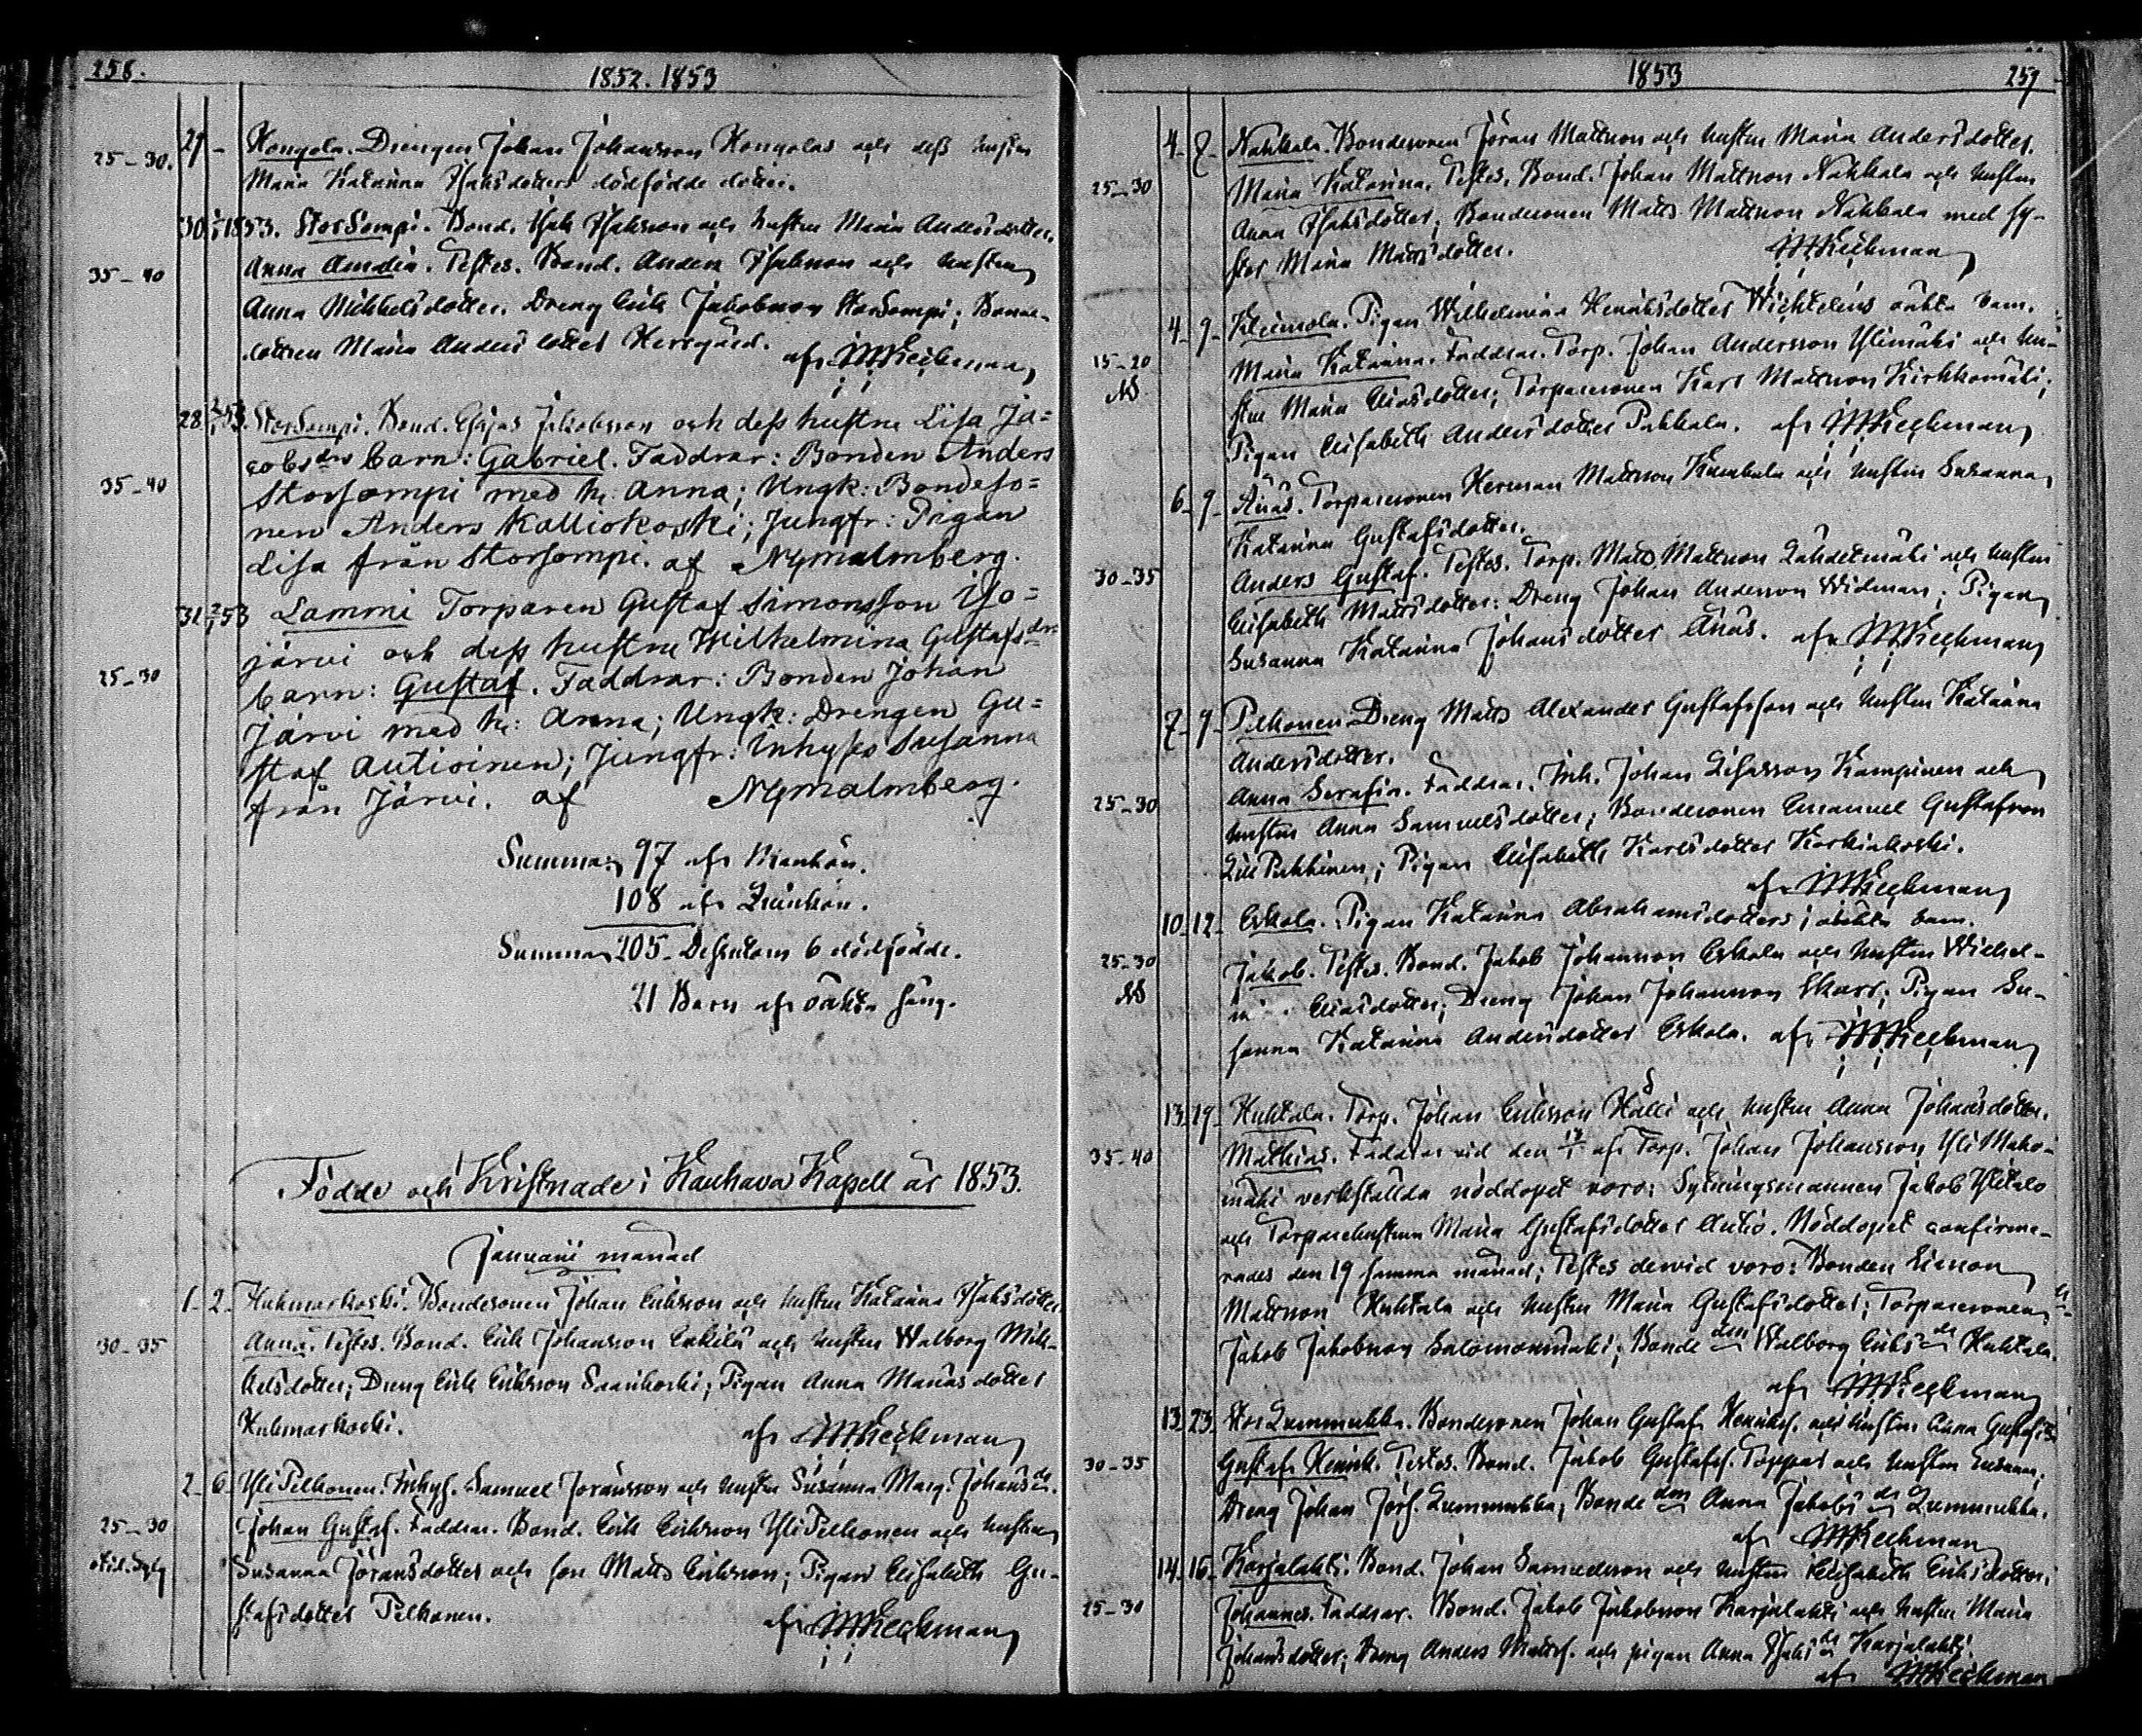 258.
1852. 1853
29 - Hongola. Drengen Johan Johansson Hongolas och dess hustru
25-30.
Maria Katarina Isaksdotters dödfödde dotter.
30 1853. Storsompi. Bond. Isak Isaksson och hustru Maria Andersdotter.
35-40
Anna Amalia. Testes. Bond. Anders Isaksson och hustru
Anna Michkelsdotter. Dreng Erik Jakobsson Storsompi; Bonde-
dottren Maria Andersdotter Herrgård. af
28 53. Storsompi. Bond. Esajas Jakobsson och dess hustru Lisa Ja-
cobsdrs barn: Gabriel. Faddrar: Bonden Anders
35-40
Storsompi med h: Anna; Ungk: Bondeso-
nen Anders Kalliokoski; Jungfr: Pigan
Lisa från Storsompi. af Nymalmberg.
31 53 Lammi Torparen Gustaf Simonsson Iso-
järvi och dess hustru Wilhelmina Gustafsdrs
25-30
barn: Gustaf. Faddrar: Bonden Johan
Järvi med h: Anna; Ungk: Drengen Gu-
staf Autioinen; Jungfr: Inhyses Susanna
från Järvi. af Nymalmberg.
Summa 97 af Mankön.
108 af Qvinkön.
Summa 205. Dessutom 6 dödfödde.
21 Barn af oäkta säng.
Födde och Kristnade i Kauhava Kapell år 1853.
Januarii månad
1 - 2 - Huhmarkoski. Bondesonen Johan Eriksson och hustru Katarina Isaksdotter
30-35
Anna. Testes. Bond. Erik Johansson Enkilä och hustru Walborg Mich-
kelsdotter; Dreng Erik Eriksson Saarikoski; Pigan Anna Mariasdotter
Huhmarkoski. af
2 - 6 - Yli Pelkonen. Inhys. Samuel Joransson och hustru Susanna Marg. Johansdr.
25-30
Johan Gustaf. Faddrar. Bond. Erik Eriksson Yli Pelkonen och hustru
Susanna Joransdotter och son Matts Eriksson; Pigan Elisabeth Gu-
stafsdotter Pelkonen. af
1853
259
4 - 8 - Nahkala. Bondesonen Jöran Mattsson och hustru Maria Andersdotter.
25-30
Maria Katarina. Testes. Bond. Johan Mattsson Nahkala och hustru
Anna Isaksdotter; Bondesonen Matts Mattsson Nahkala med sy-
ster Maria Mattsdotter.
4 - 9 - Kleimola. Pigan Wilhelmina Henriksdotter oäkta barn.
15-20
Maria Katarina. Faddrar. Torp. Johan Andersson Ylimäki och hu-
stru Maria Eliasdotter; Torparesonen Karl Mattsson Kirkkomäki;
Pigan Elisabeth Andersdotter Pahkala. af
6 - 9 - Änäs. Torparesonen Herman Mattsson och hustru Susanna
Katarina Gustafsdotter.
30-35
Anders Gustaf. Testes. Torp. Matts Mattsson Lähdetmäki och hustru
Elisabeth Mattsdotter: Dreng Johan Andersson Widman; Pigan
Susanna Katarina Johansdotter Änäs. af
7 - 9 - Pelkonen. Dreng Matts Alexander Gustafsson och hustru Katarina
Andersdotter.
25-30
Anna Serafia. Faddrar. Inh. Johan Kampinen och
hustru Anna Samuelsdotter; Bondesonen Emanuel Gustafsson
Pukkinen; Pigan Elisabeth Karlsdotter Korkiakoski.
af
10 - 12 - Eskola. Pigan Katarina Abrahamsdotters oäkta barn.
25-30
Jakob. Testes. Bond. Jakob Johansson Eskola och hustru Wilhel-
Eliasdotter; Dreng Johan Johansson Skarp; Pigan Su-
sanna Katarina Andersdotter Eskola. af
13 - 19 - Huhtala. Torp. Johan Eriksson Hälli och hustru Anna Johansdotter.
35-40
Mathias. Faddrar vid den af Torp. Johan Johansson
mäki verkställda nöddopet voro: Sytningsmannen Jakob Ylitalo
och Torparehustrun Maria Gustafsdotter Autio. Nöddopet confirme-
rades den 19 samma månad; Testes dervid voro: Bonden Simon
Mattsson Huhtala och hustru Maria Gustafsdotter; Torparesonen
Jakob Jakobsson Salomonmäki; Bonde Walborg Eriksdr Huhtala.
af
13 - 23 - Luomukka. Bondesonen Johan Gustaf Henriks. och hustru Anna Gustafsdr
30-35
Gustaf Henrik. Testes. Bond. Jakob Gustafs. Toppar och hustru Susanna;
Dreng Johan Luomukka; Bonde Anna Jakobsdr Luomukka.
af
14 - 16 - Karjalahti. Bond. Johan Samuelsson och hustru Elisabeth Eriksdotter.
25-30
Johannes. Faddrar. Bond. Jakob Jakobsson Karjalahti och hustru Maria
Johansdotter; Dreng Anders Matts. och pigan Anna Isaksdr Karjalahti.
af